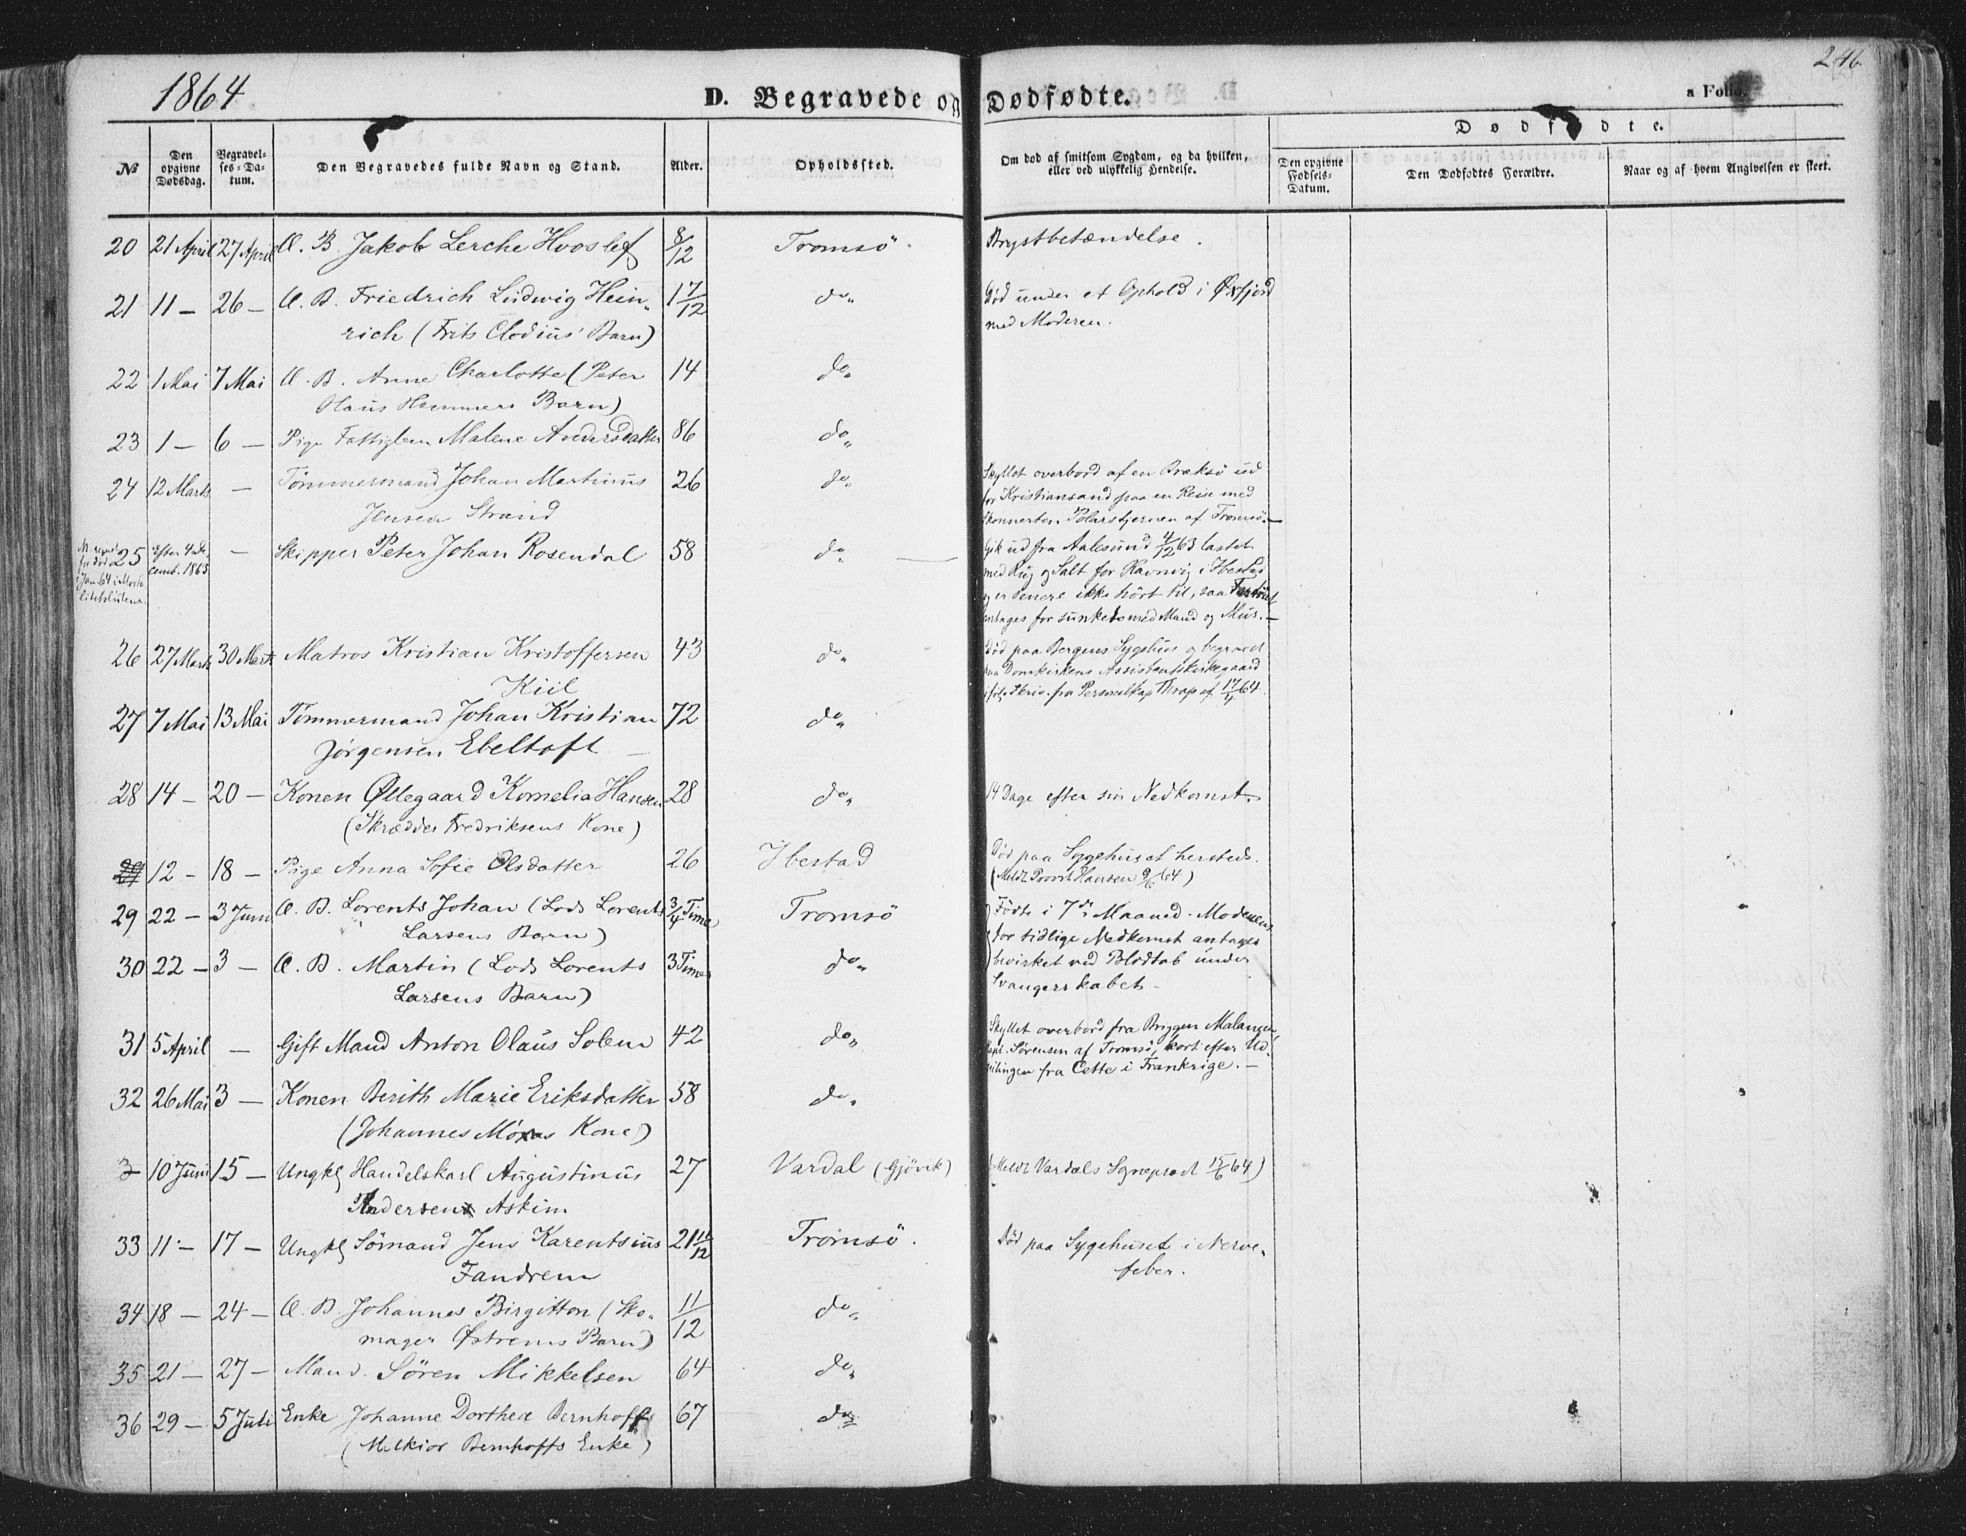 1864
D. Begravede og Dødfødte.
246
a Folio
Dødfødte.
№
Den opgivne Dødsdag.
Begravelses-Datum.
Den Begravedes fulde Navn og Stand.
Alder.
Opholdssted.
Om død af smitsom Sygdom, og da hvilken, eller ved ulykkelig Hendelse.
Den opgivne Fødsels-Datum.
Den Dødfødtes Forældre.
Naar og af hvem Angivelsen er skeet.
20 21 April 27 April Æ. B. Jakob Lerche Hvoslef 8/12 Tromsö. Brystbetændelse.
21 11 – 26 – Æ. B. Friedrich Ludwig Hein- 1 7/12 do„ Död under et Ophold i Øxfjord
rich (Frits Clodius' Barn) med Moderen.
22 1 Mai 7 Mai Æ. B. Anne Charlotte (Peter 14 do„
Olaus Hammers Barn)
23 1 – 6 – Pige Fattiglem Malene Andersdatter 86 do„
24 12 Marts – Tömmermand Johan Martinus 26 do„ Skyllet overbord af en Bræksö ud
Jensen Strand for Kristiansand paa en Reise med
Skonnerten Polarstjernen af Tromsö. –
25 Efter 4 de cemb. 1863 – Skipper Peter Johan Rosendal 58 do„ – Gik ud fra Aalesund 4/12 63 lastet
med Rug og Salt for Havnvig i Ibestad
og er senere ikke hört til, saa Fartöiet
antages for sunket med Mand og Mus. –
26 27 Marts 30 Marts Matros Kristian Kristoffersen 43 do„ Död paa Bergens Sygehus og begravet
Kiil paa Domkirkens Assistentskirkegaard
27 7 Mai 13 Mai Tömmermand Johan Kristian 72 do„
Jørgensen Ebeltoft –
28 14 – 20 – Konen Øllegaard Kornelia Hansen 28 do„ 14 Dage efter sin Nedkomst.
(Skrædder Fredriksens Kone)
12 – 18 – Pige Anna Sofie Olsdatter 26 Ibestad Död paa Sygehuset hersteds.
29 22 – 3 Juni Æ. B. Lorents Johan (Lods Lorents 3/4 Time Tromsö Födte i 7de Maaned. Moderens
Larsens Barn) for tidlige Nedkomst antages
30 22 – 3 – Æ. B. Martin (Lods Lorents 3 Timer do„ bevirket ved Blodtab under
Larsens Barn) Svangerskabet –
31 5 April – Gift Mand Anton Olaus Solem 42 do„ Skyllet overbord fra Briggen Malangen,
Kapt. Sörensen af Tromsö, kort efter Ud-
seilingen fra Cette i Frankrige. –
32 26 Mai 3 – Konen Berith Marie Eriksdatter 58 do„
(Johannes Kone)
3 10 Juni 15 – Ungkl Handelskarl Augustinus 27 Vardal (Gjövik) (Meldt Vardals Sognepræst 15/6 64)
Andersen Askim
33 11 – 17 – Ungkl Sömand Jens Karentsius 21 Tromsö. Död paa Sygehuset i Nerve-
Fandrem feber.
34 18 – 24 – Æ. B. Johannes Birgitton (Sko- 11/12 do„
mager Østrems Barn)
35 21 – 27 – Mand. Sören Mikkelsen 64 do„
36 29 – 5 Juli Enke Johanne Dorthea Bernhoft 67 do„
(Melkior Bernhoffs Enke)